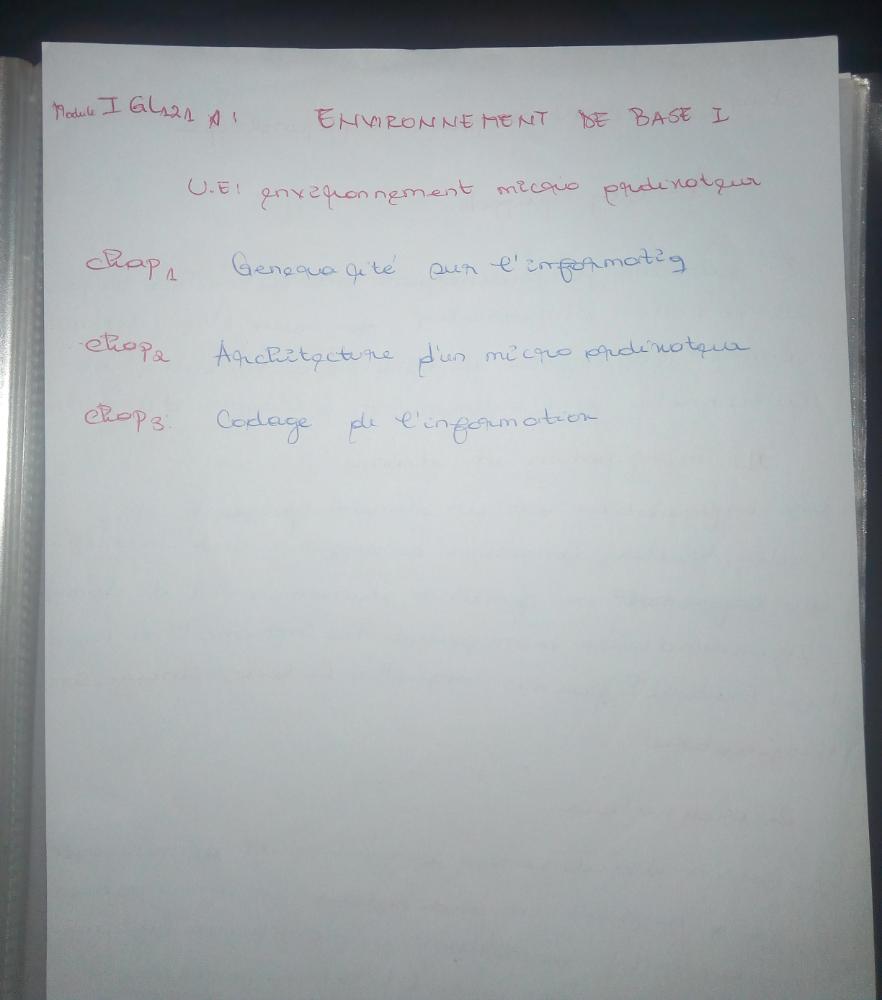 Module IGL121 A: ENVIRONNEMENT DE BASE I
U.E: environnement micro ordinateur
chap1 Generalité sur l'informatiq
chap2 Architecture d'un micro ordinateur
chap3: Codage de l'information